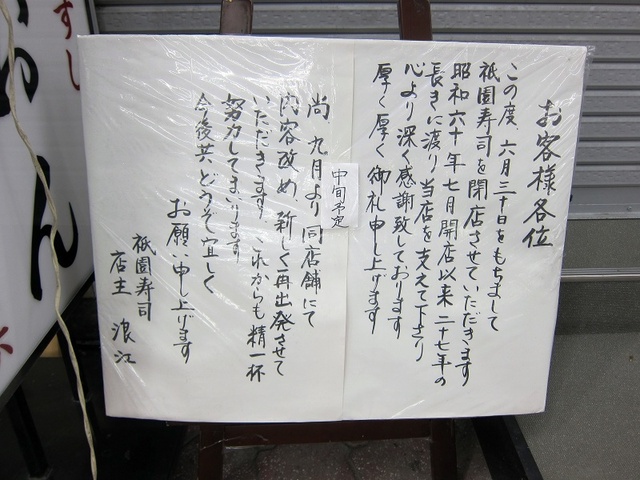 お客様各位
この度、六月三十日をもちまして
祇園寿司を閉店させていただきます
昭和六十年七月開店以来二十七年の
長きに渡り当店を支えて下さり
心より深く感謝致しております
厚く厚く御札申し上げます
尚 九月より同店舗にて
中旬予定
内容改め 新しく再出発させて
いただきます これからも精一杯
努力してまいります
今後共どうぞ宜しく
お願い申し上げます
祇園寿司
店主 浪江
すし